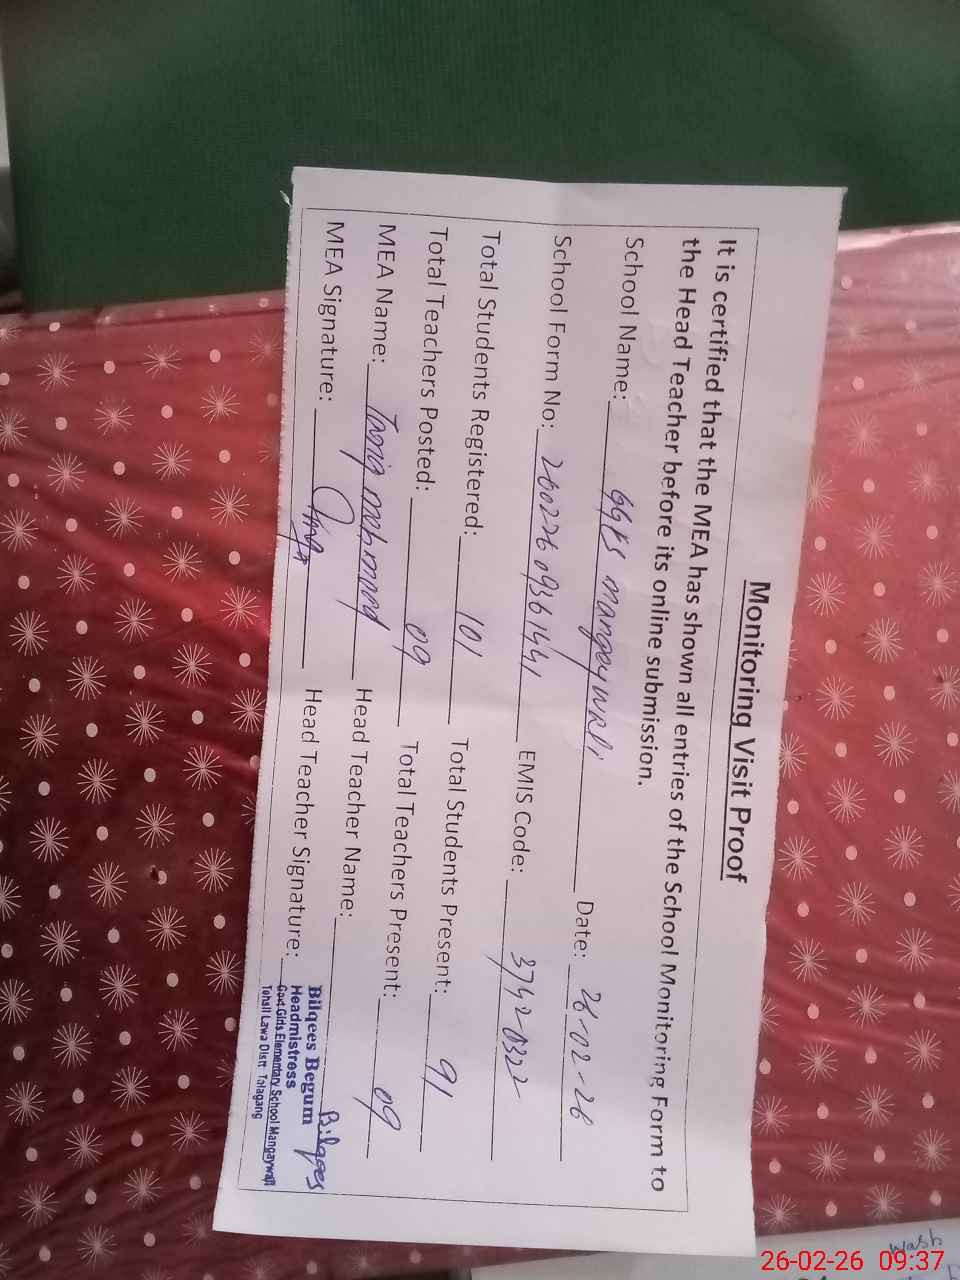 Monitoring Visit Proof
It is certified that the MEA has shown all entries of the School Monitoring Form to
the Head Teacher before its online submission.
School Name: GGES mangaywali Date: 26-02-26
School Form No: EMIS Code: 37420322
Total Students Registered: 101 Total Students Present: 91
Total Teachers Posted: 09 Total Teachers Present: 09
MEA Name: Head Teacher Name: Bilqees
MEA Signature: Head Teacher Signature:
Bilqees Begum
Headmistress
Govt.Girls Elementary School Mangaywali
Tehsil Lawa Distt Talagang
wash
26-02-26 09:37